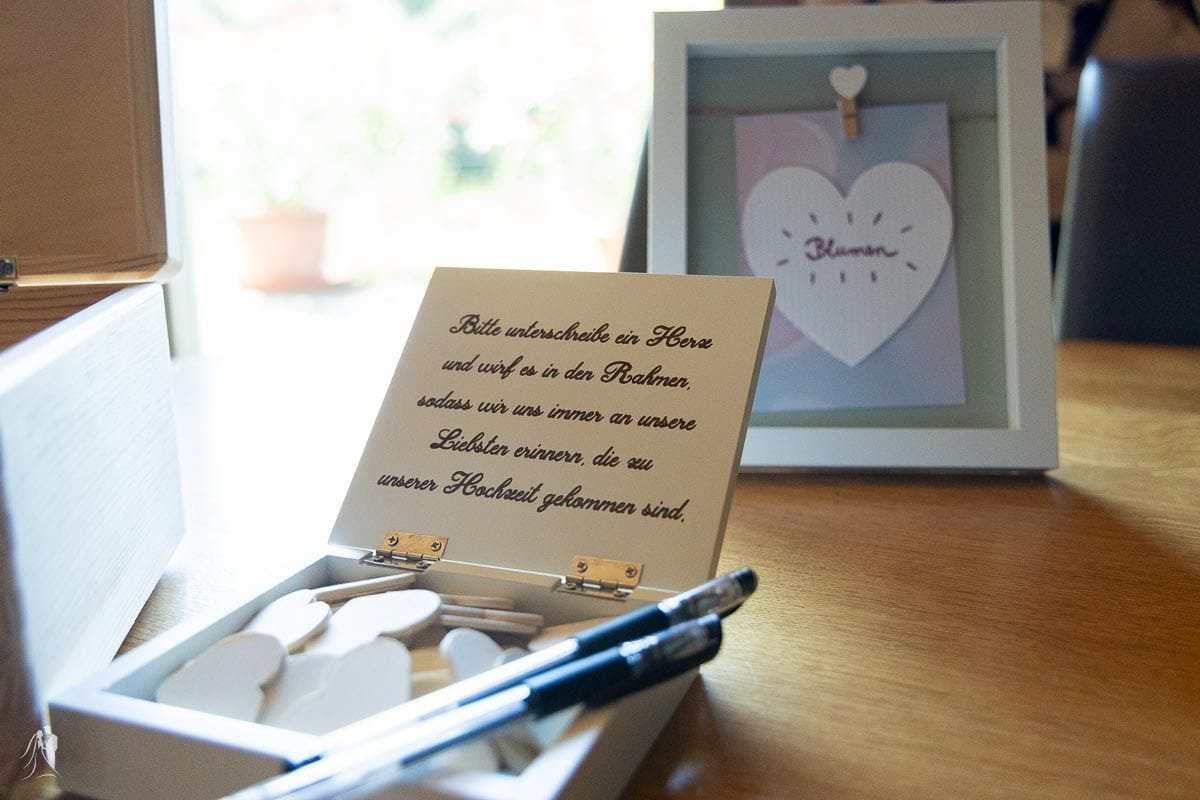 Bitte unterschreibe ein Herz
und wirf es in den Rahmen,
sodass wir uns immer an unsere
Liebsten erinnern, die zu
unserer Hochzeit gekommen sind.
Blumen